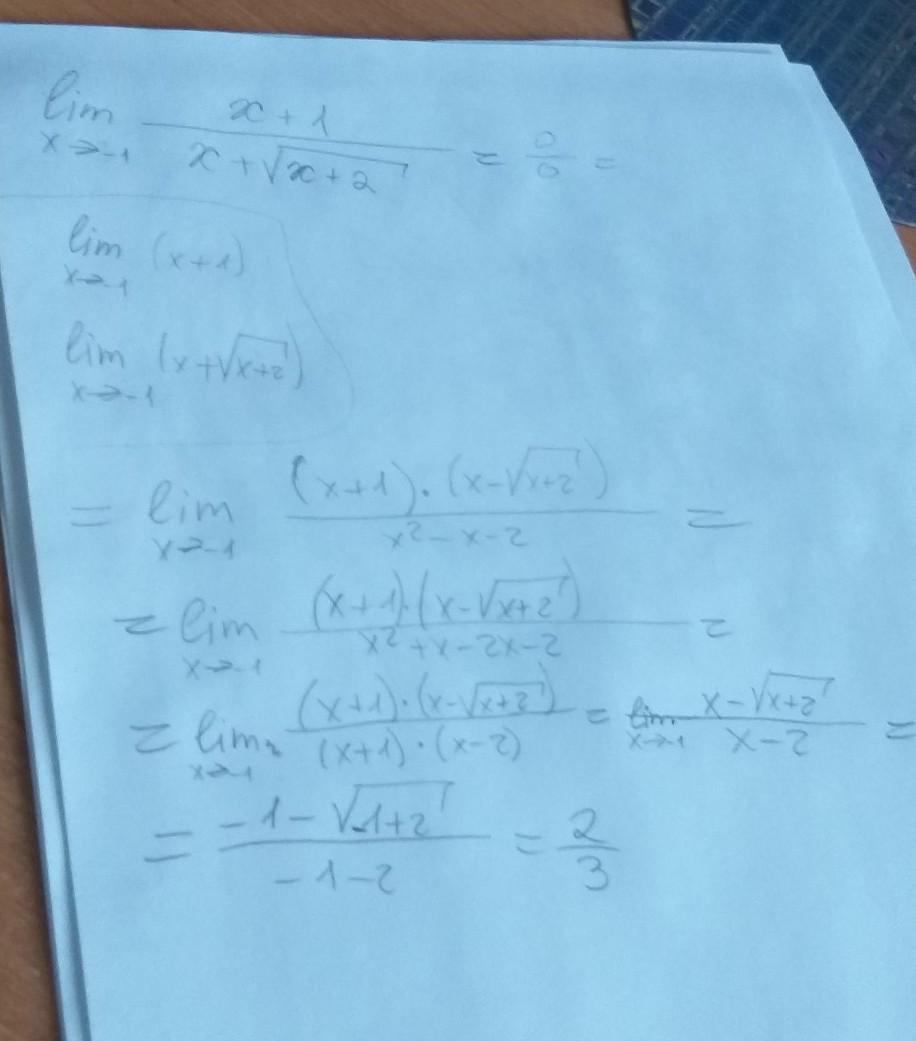 lim x→-1 (x+1)/(x+√(x+2)) = 0/0 =
lim x→-1 (x+1)
lim x→-1 (x+√(x+2))
= lim x→-1 ((x+1)·(x-√(x+2)))/(x²-x-2) =
= lim x→-1 ((x+1)·(x-√(x+2)))/(x²+x-2x-2) =
= lim x→-1 ((x+1)·(x-√(x+2)))/((x+1)·(x-2)) = lim x→-1 (x-√(x+2))/(x-2) =
= (-1-√(-1+2))/(-1-2) = 2/3